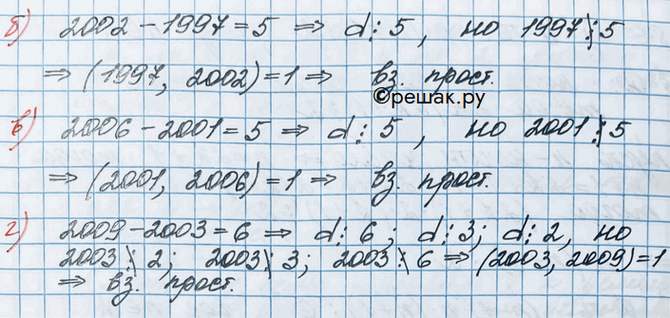 б) 2002 - 1997 = 5 ⇒ d ⋮ 5 , но 1997 ⋮̸ 5
⇒ (1997, 2002) = 1 ⇒ вз. прост.
©решак.ру
в) 2006 - 2001 = 5 ⇒ d ⋮ 5 , но 2001 ⋮̸ 5
⇒ (2001, 2006) = 1 ⇒ вз. прост.
г) 2009 - 2003 = 6 ⇒ d ⋮ 6 ; d ⋮ 3 ; d ⋮ 2, но
2003 ⋮̸ 2 ; 2003 ⋮̸ 3 ; 2003 ⋮̸ 6 ⇒ (2003, 2009) = 1
⇒ вз. прост.